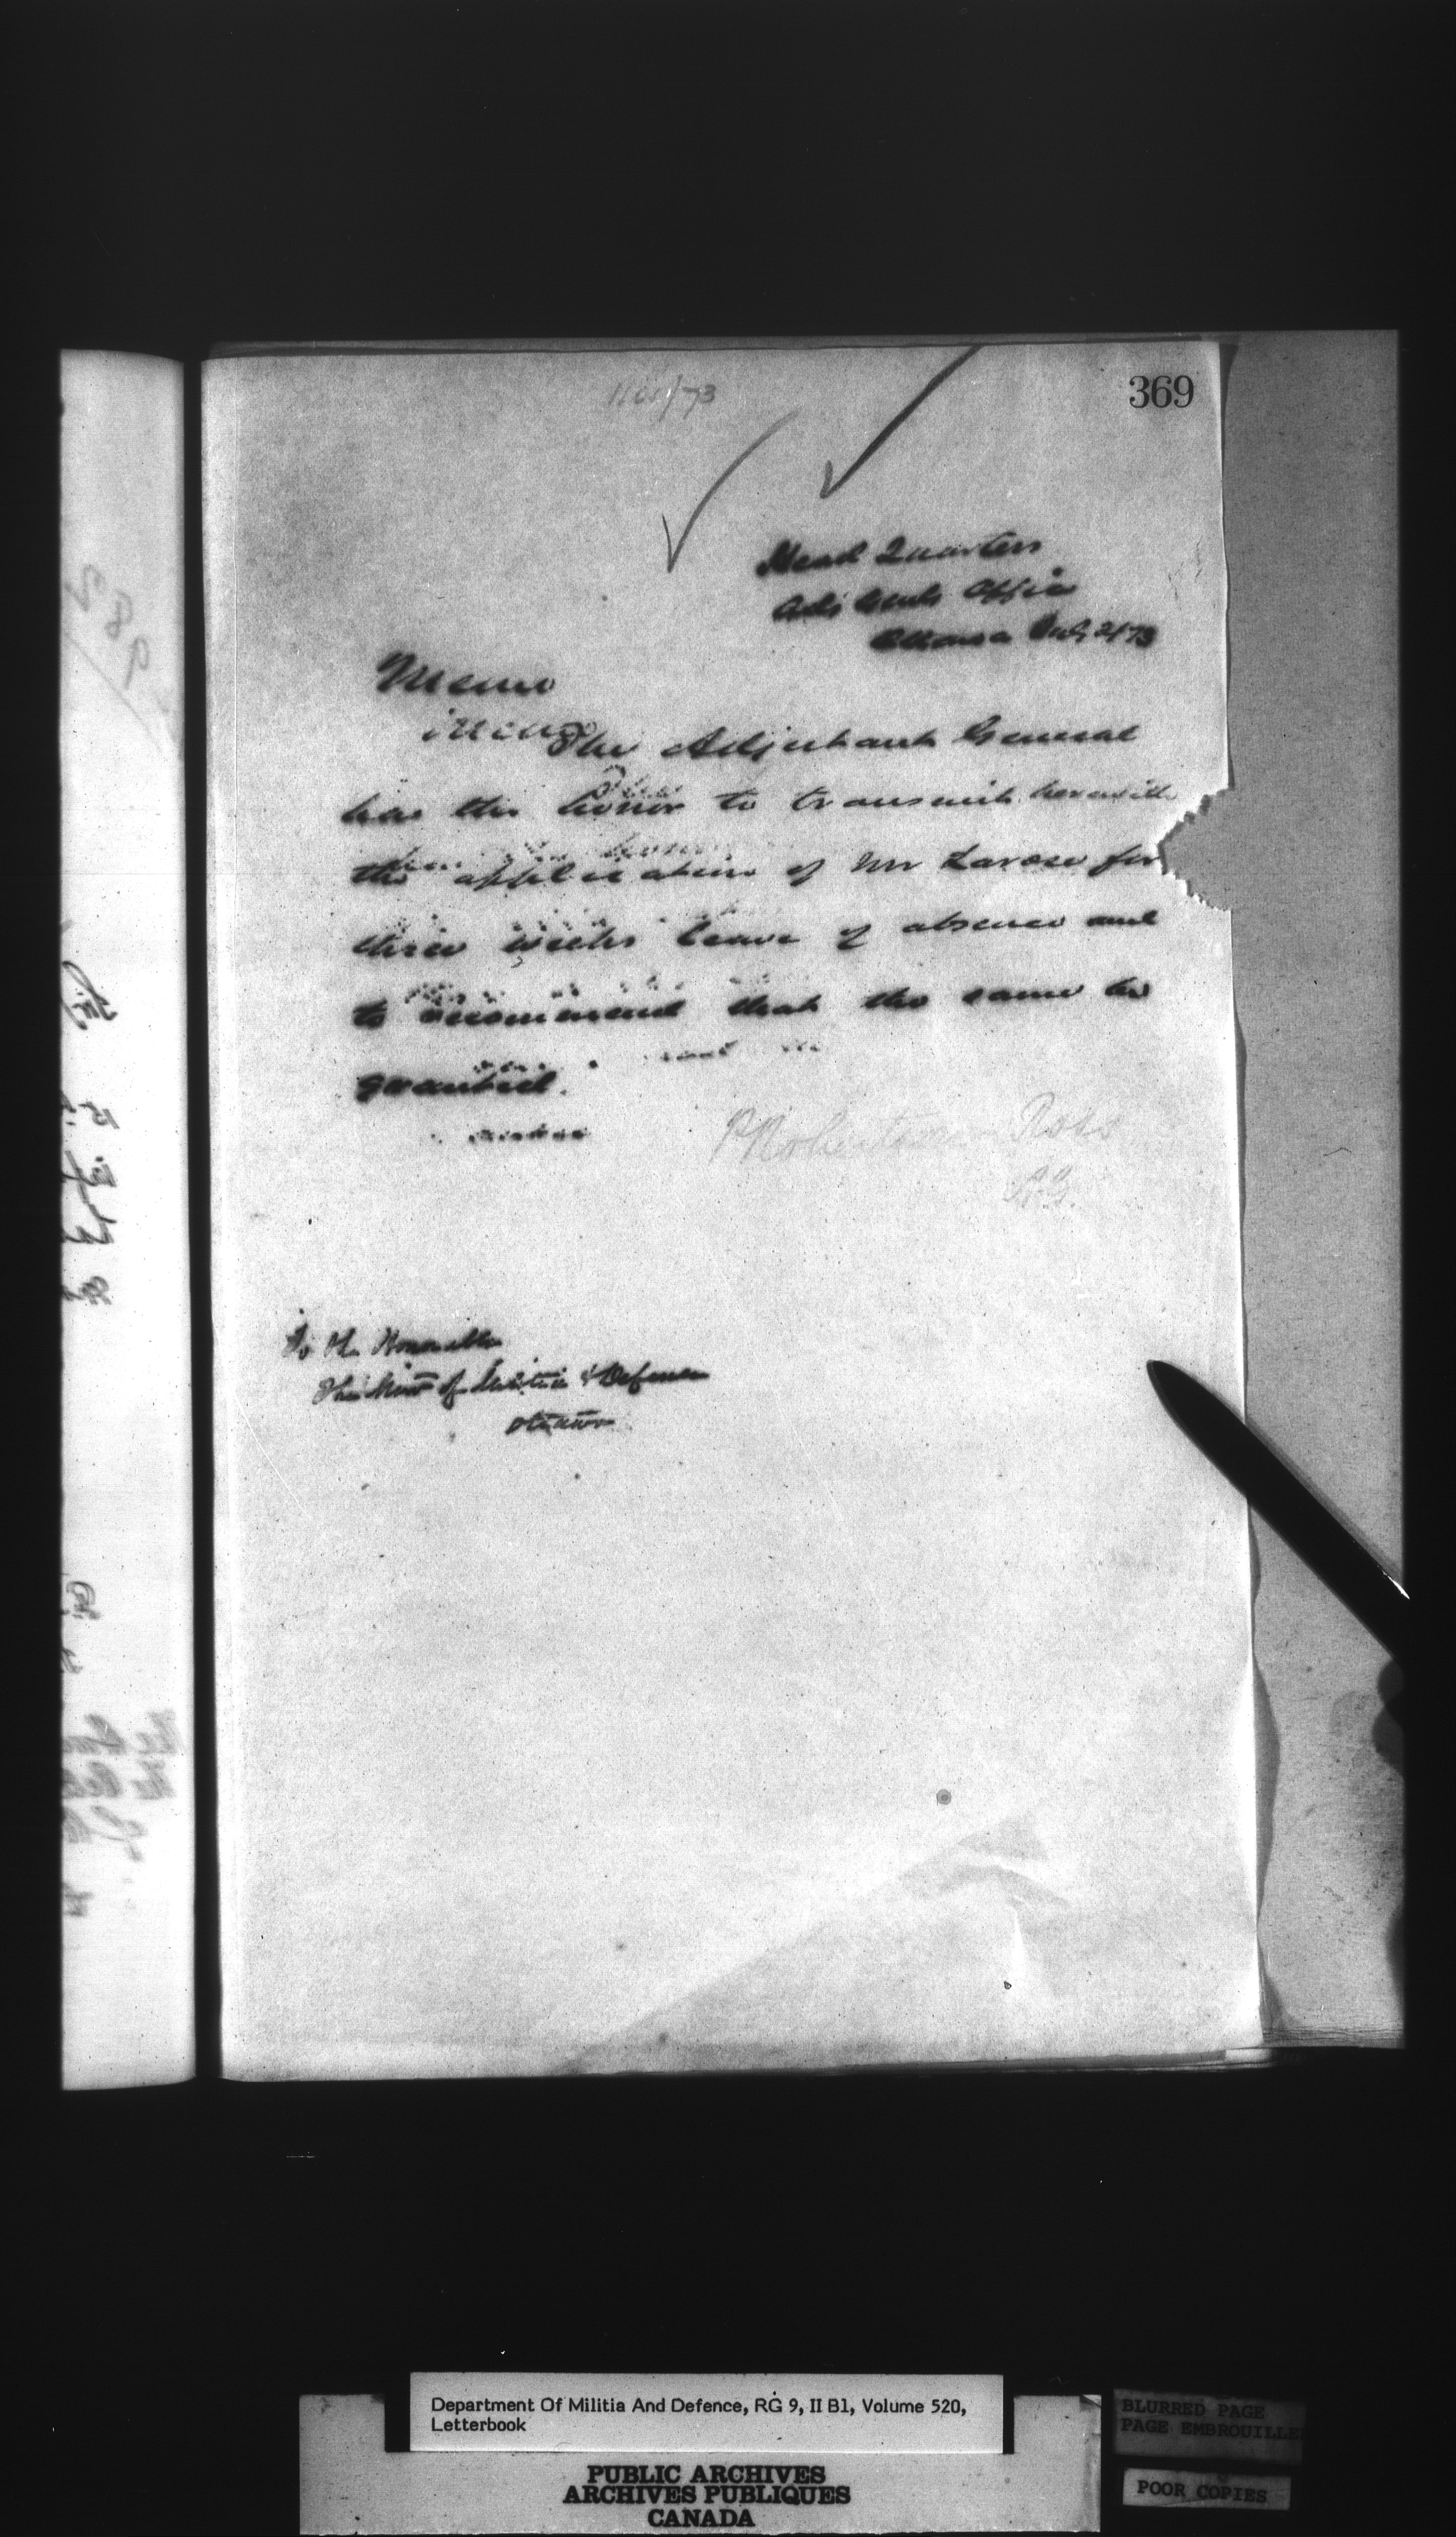 369
/73
Head Quarters
Adj Genls Office
Ottawa July 2/73
Memo
The Adjutant General
has the honor to transmit herewith
the application of Mr Larose for
three weeks leave of absence and
to recommend that the same be
granted.
P Robertson Ross
A.G.
To the Honorable
The Minr of Militia & Defence
Ottawa
Department Of Militia And Defence, RG 9, II B1, Volume 520,
Letterbook
PUBLIC ARCHIVES
ARCHIVES PUBLIQUES
CANADA
BLURRED PAGE
PAGE EMBROUILLE
POOR COPIES